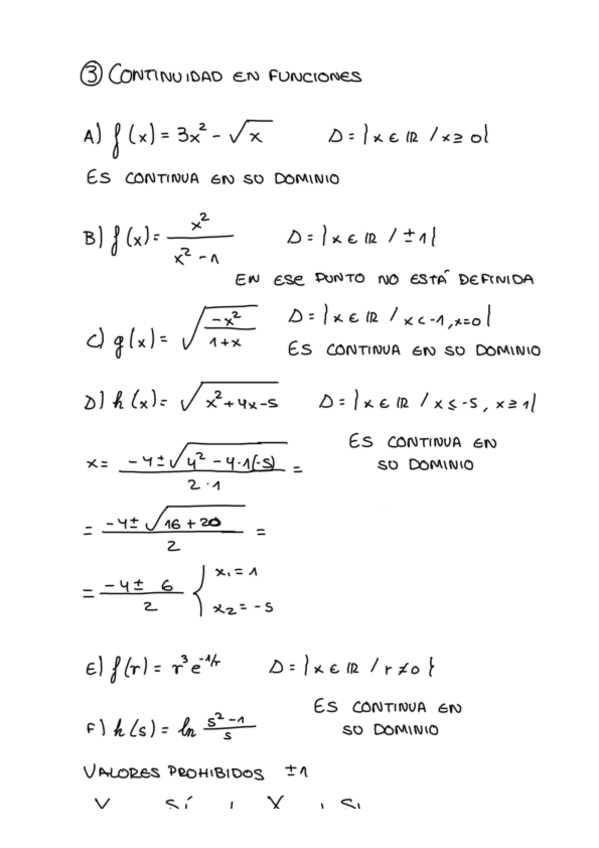 ③ CONTINUIDAD EN FUNCIONES
A) f(x) = 3x² - √x D = {x ∈ ℝ / x ≥ 0}
ES CONTINUA EN SO DOMINIO
B) f(x) = x² / (x² - 1) D = {x ∈ ℝ / ± 1}
EN ESE PUNTO NO ESTÁ DEFINIDA
C) g(x) = √(-x² / (1+x)) D = {x ∈ ℝ / x < -1, x=0}
ES CONTINUA EN SO DOMINIO
D) h(x) = √(x²+4x-5) D = {x ∈ ℝ / x ≤ -5, x ≥ 1}
ES CONTINUA EN
SO DOMINIO
x = (-4 ± √(4² - 4·1(-5))) / (2·1) =
= (-4 ± √(16 + 20)) / 2 =
= (-4 ± 6) / 2 { x₁ = 1
x₂ = -5
E) f(r) = r³e^(-1/r) D = {x ∈ ℝ / r ≠ 0}
ES CONTINUA EN
SO DOMINIO
F) h(s) = ln (s² - 1) / s
VALORES PROHIBIDOS ±1